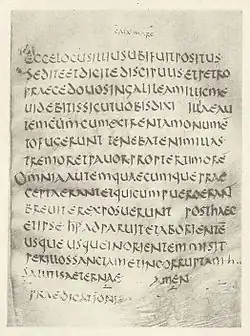 ECCELOCUSILLIUSUBIFUITPOSITUS
SEDITEETDICITEDISCIPULISETPETRO
PRAECEDOUOSINGALILEAMILLICME
UIDEBITISSICUTUOBISDIXI ILLAEAU
TEMCUMCUMEXIRENTAMONUME
TOFUGERUNTTENEBATENIMILLAS
TREMORETPAUORPROPTERTIMORE
OMNIAAUTEMQUAECUMQUEPRAE
CEPTAERANTETQUICUMPUEROERAN
BREUITEREXPOSUERUNT POSTHAEC
ETIPSE ADPARUITETABORIENTE
USQUEUSQUEINORIENTEMMISIT
PERILLOSSANCTAMETINCORRUPTAM
SALUTISAETERNAE AMEN
PRAEDICATIONIS